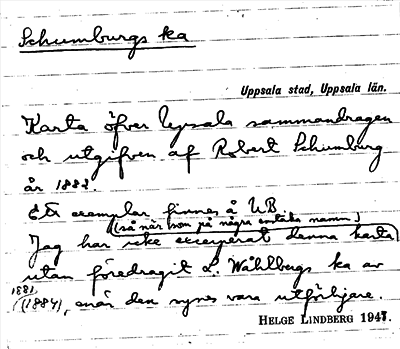 Schumburgs ka
Uppsala stad, Uppsala län.
Karta öfver Upsala sammandragen
och utgifven af Robert Schumburg
år 1882.
Ett exemplar finnes å UB
(så när som på några enstaka namn)
Jag har icke excerperat denna karta
utan föredragit L. Wåhlbergs ka av
1881
(1884), enär den synes vara utförligare.
HELGE LINDBERG 1947.